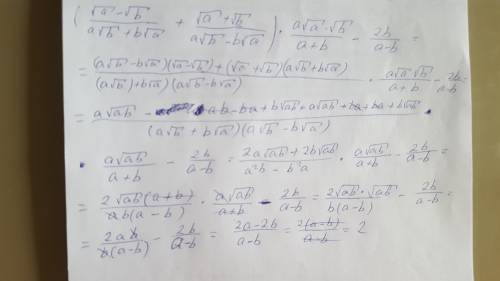 ( (√a - √b)/(a√b + b√a) + (√a + √b)/(a√b - b√a) ) · (a√a · √b)/(a+b) - 2b/(a-b) =
= ((a√b - b√a)(√a - √b) + (√a + √b)(a√b + b√a))/((a√b) + b√a)(a√b - b√a) · (a√a √b)/(a+b) - 2b/(a-b) =
= (a√ab - ab - ba + b√ab + a√ab + ba + ba + b√ab)/((a√b + b√a)(a√b - b√a)) ·
· a√ab/(a+b) - 2b/(a-b) = (2a√ab + 2b√ab)/(a²b - b²a) · a√ab/(a+b) - 2b/(a-b) =
= 2√ab(a+b)/(ab(a-b)) · a√ab/(a+b) - 2b/(a-b) = (2√ab · √ab)/(b(a-b)) - 2b/(a-b) =
= 2ab/(b(a-b)) - 2b/(a-b) = (2a-2b)/(a-b) = 2(a-b)/(a-b) = 2